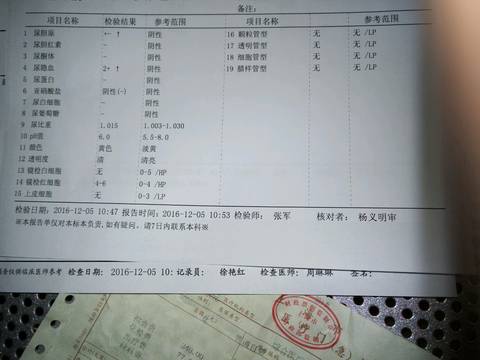 备注:
项目名称 检验结果 参考范围 项目名称 参考范围
1 尿胆原 ← ↑ 阴性 16 颗粒管型 无 无 /LP
2 尿胆红素 - 阴性 17 透明管型 无 无 /LP
3 尿酮体 - 阴性 18 细胞管型 无 无 /LP
4 尿隐血 2+ ↑ 阴性 19 腊样管型 无 无 /LP
5 尿蛋白 - 阴性
6 亚硝酸盐 阴性(-) 阴性
7 尿白细胞 - 阴性
8 尿葡萄糖 - 阴性
9 尿比重 1.015 1.003-1.030
10 pH值 6.0 5.5-8.0
11 颜色 黄色 淡黄
12 透明度 清 清亮
13 镜检白细胞 无 0-5 /HP
14 镜检红细胞 4-6 0-4 /HP
15 上皮细胞 无 0-3 /LP
检验日期: 2016-12-05 10:47 报告时间: 2016-12-05 10:53 检验师: 张军 核对者: 杨义明审
※本报告单仅对本标本负责,如有疑问, 请7日内联系本科※
供临床医师参考 检查日期: 2016-12-05 10: 记录员: 徐艳红 检查医师: 周琳琳 签名: